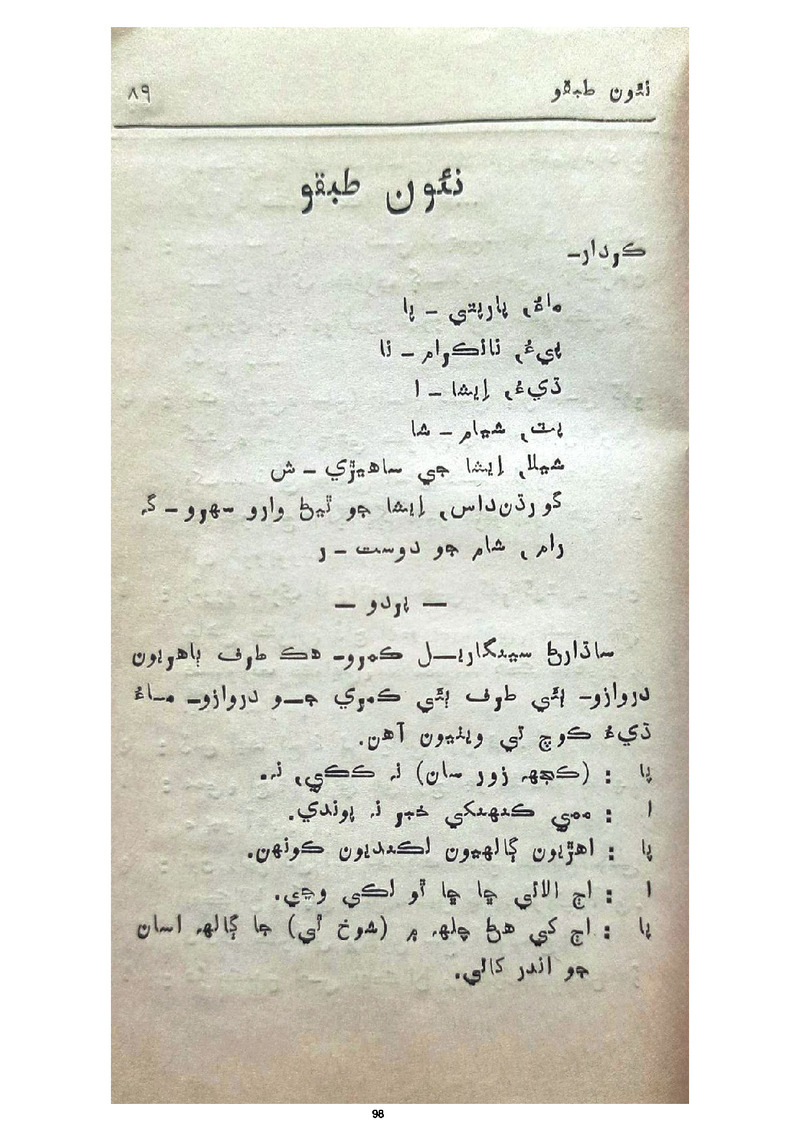 نئون طبقو ۸۹
نئون طبقو
ڪردار-
ماءُ، پارپتي - پا
پيءُ، نانڪرام - نا
ڌيءُ، اِيشا - ا
پٽ، شيام - شا
شيلا، اِيشا جي ساهيڙي - ش
گورڌنداس، اِيشا جو ٿيڻ وارو سهرو - گ
رام، شام جو دوست - ر
— پردو —
ساڌارڻ سينگاريل ڪمرو- هڪ طرف ٻاهريون
دروازو- ٻئي طرف ٻئي ڪمري جو دروازو- ماءُ
ڌيءُ ڪوچ تي ويٺيون آهن.
پا : (ڪجهہ زور سان) نہ ڪڪي، نہ.
ا : ممي ڪنهنکي خبر نہ پوندي.
پا : اهڙيون ڳالهيون لڪنديون ڪونهن.
ا : اڄ الائي ڇا ڇا ٿو لڪي وڃي.
پا : اڄ کي هڻ چلهہ ۾ (شوخ ٿي) جا ڳالهہ اسان
جو اندر کائي.
98